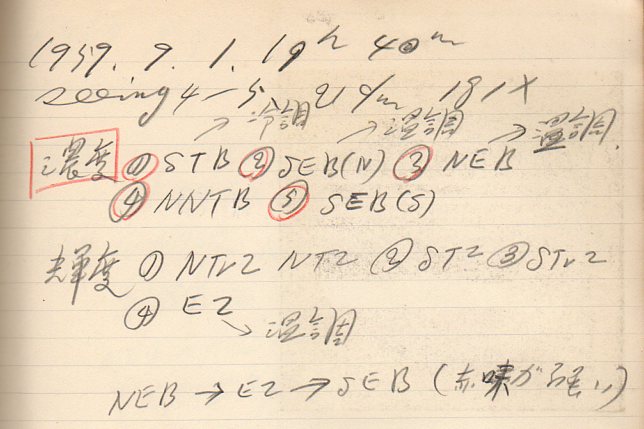 1959. 9. 1. 19h 40m
seeing 4-5 21cm 181X
冷調 温調 温調
濃度 ① STB ② SEB(N) ③ NEB
④ NNTB ⑤ SEB(S)
輝度 ① NTrZ NTZ ② STZ ③ STrZ
④ EZ
温調
NEB → EZ → SEB (赤味が強い)